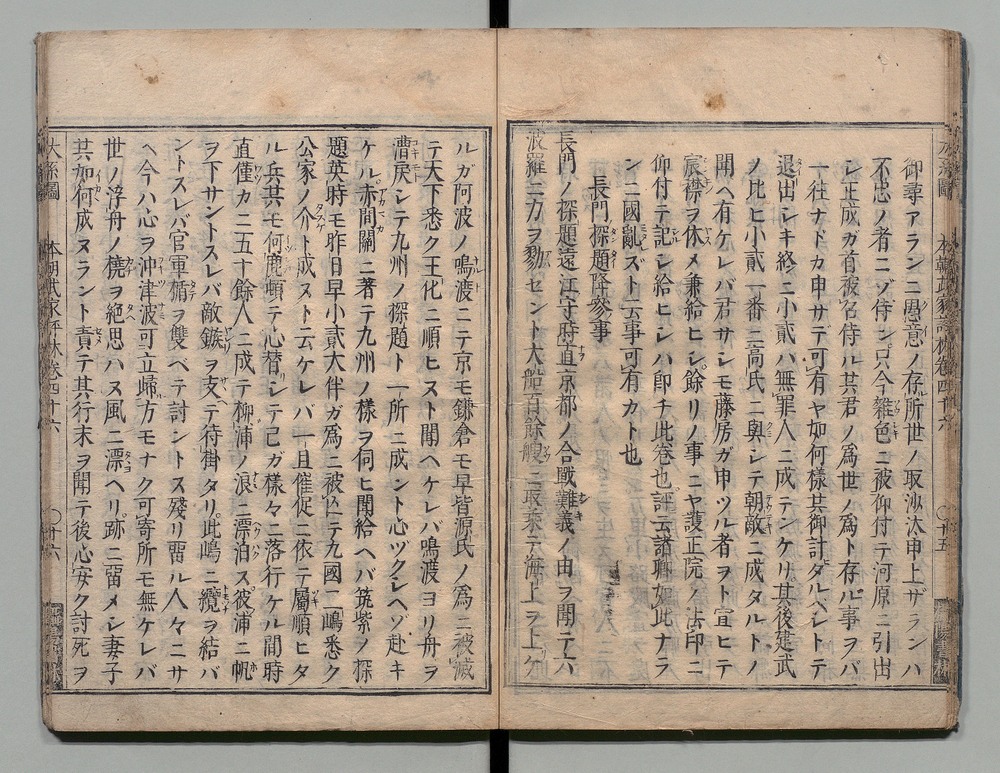 御尋アランニ愚意ノ存所世ノ取沙汰申上ザランハ
不忠ノ者ニゾ侍ン只今雑色ニ被仰付テ河原ニ引出
シ正成ガ首被召侍ル共君ノ為世ノ為ト存ル事ヲバ
一往ナドカ申サデ可有ヤ如何様其御討タルベシトテ
退出シキ終ニ小貳ハ無罪人ニ成テンケリ其後建武
ノ比ヒ小貳一番ニ高氏ニ與シテ朝敵ニ成タルトノ
聞ヘ有ケレバ君サシモ藤房ガ申ツル者ヲト宣ヒテ
宸襟ヲ休メ兼給ヒシ餘リノ事ニヤ護正院ノ法印ニ
仰付テ記シ給ヒシハ即チ此巻也評云諸卿如此ナラ
ンニ國亂ズト云事可有カト也
長門探題降参事
長門ノ探題遠江守時直京都ノ合戰難義ノ由ヲ聞テ六
波羅ニ力ヲ勠セント大船百餘艘ニ取乗テ海上ヲ上ケ
ルガ阿波ノ鳴渡ニテ京モ鎌倉モ早皆源氏ノ為ニ被滅
テ天下悉ク王化ニ順ヒヌト聞ヘケレバ鳴渡ヨリ舟ヲ
漕戻シテ九州ノ探題ト一所ニ成ント心ヅクシヘゾ赴キ
ケル赤間關ニ著テ九州ノ様ヲ伺ヒ聞給ヘバ筑紫ノ探
題英時モ昨日早小貳大伴ガ為ニ被亡テ九國二嶋悉ク
公家ノ介ト成ヌト云ケレバ一旦催促ニ依テ屬順ヒタ
ル兵共モ何鹿頓テ心替シテ己ガ様々ニ落行ケル間時
直僅カニ五十餘人ニ成テ柳浦ノ浪ニ漂泊ス彼浦ニ帆
ヲ下サントスレバ敵鏃ヲ支テ待掛タリ此嶋ニ纜ヲ結バ
ントスレバ官軍楯ヲ雙ベテ討ントス殘リ畱ル人々ニサ
ヘ今ハ心ヲ沖津波可立歸方モナク可寄所モ無ケレバ
世ノ浮舟ノ橈ヲ絶思ハヌ風ニ漂ヘリ跡ニ畱メシ妻子
共如何成ヌラント責テ其行末ヲ聞テ後心安ク討死ヲ
大系圖 本朝武家評林巻四十六 〇廿六